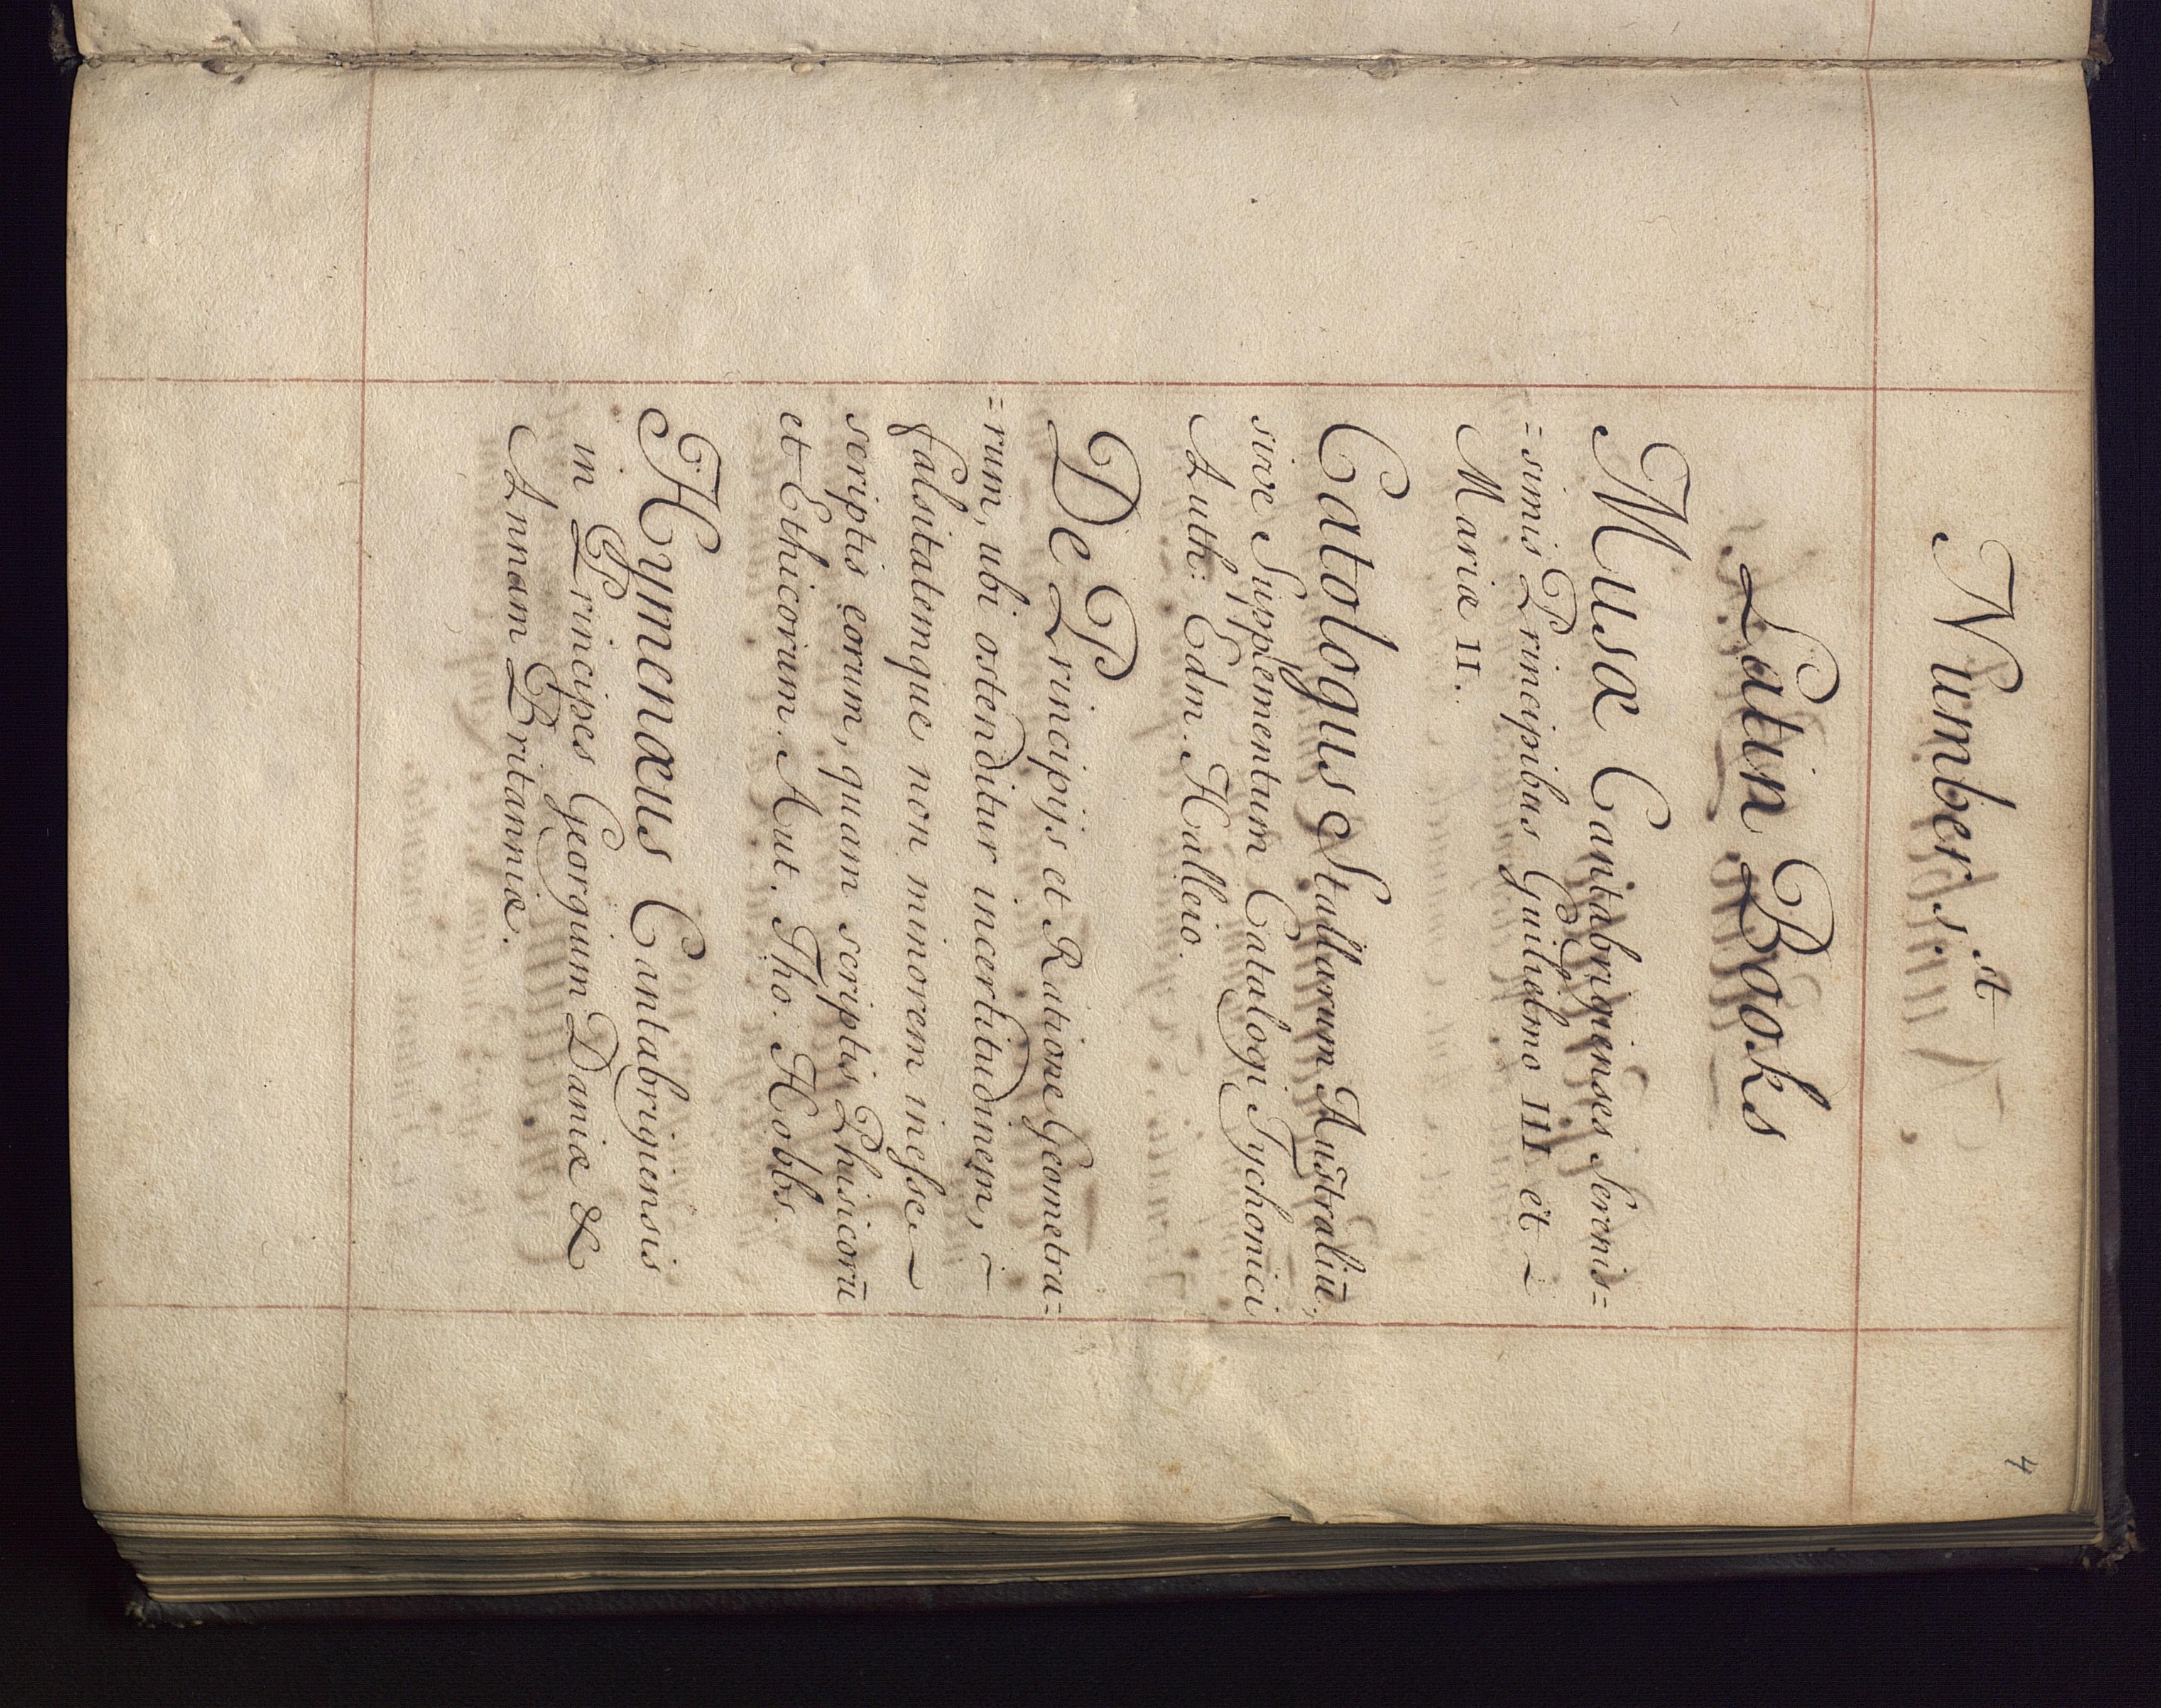 4
Number 1.st
Latin Books
Musæ Cantabrigienses Serenis=
=simis Principibus Guilielmo III et
Mariæ II.
Catologus Stallarum Australiū,
sive Supplementum Catalogi Tychonici
Auth: Edm. Halleio.
De Principijs et Ratione Geometra=
=rum, ubi ostenditur incertitudinem,
falsitatemque non minorem inesse
scriptis eorum, quam scriptis Phisicorū
et Ethicorum. Aut. Tho: Hobbs.
Hymenæus Cantabrigiensis
in Principes Georgium Daniæ &
Annam Britanniæ.